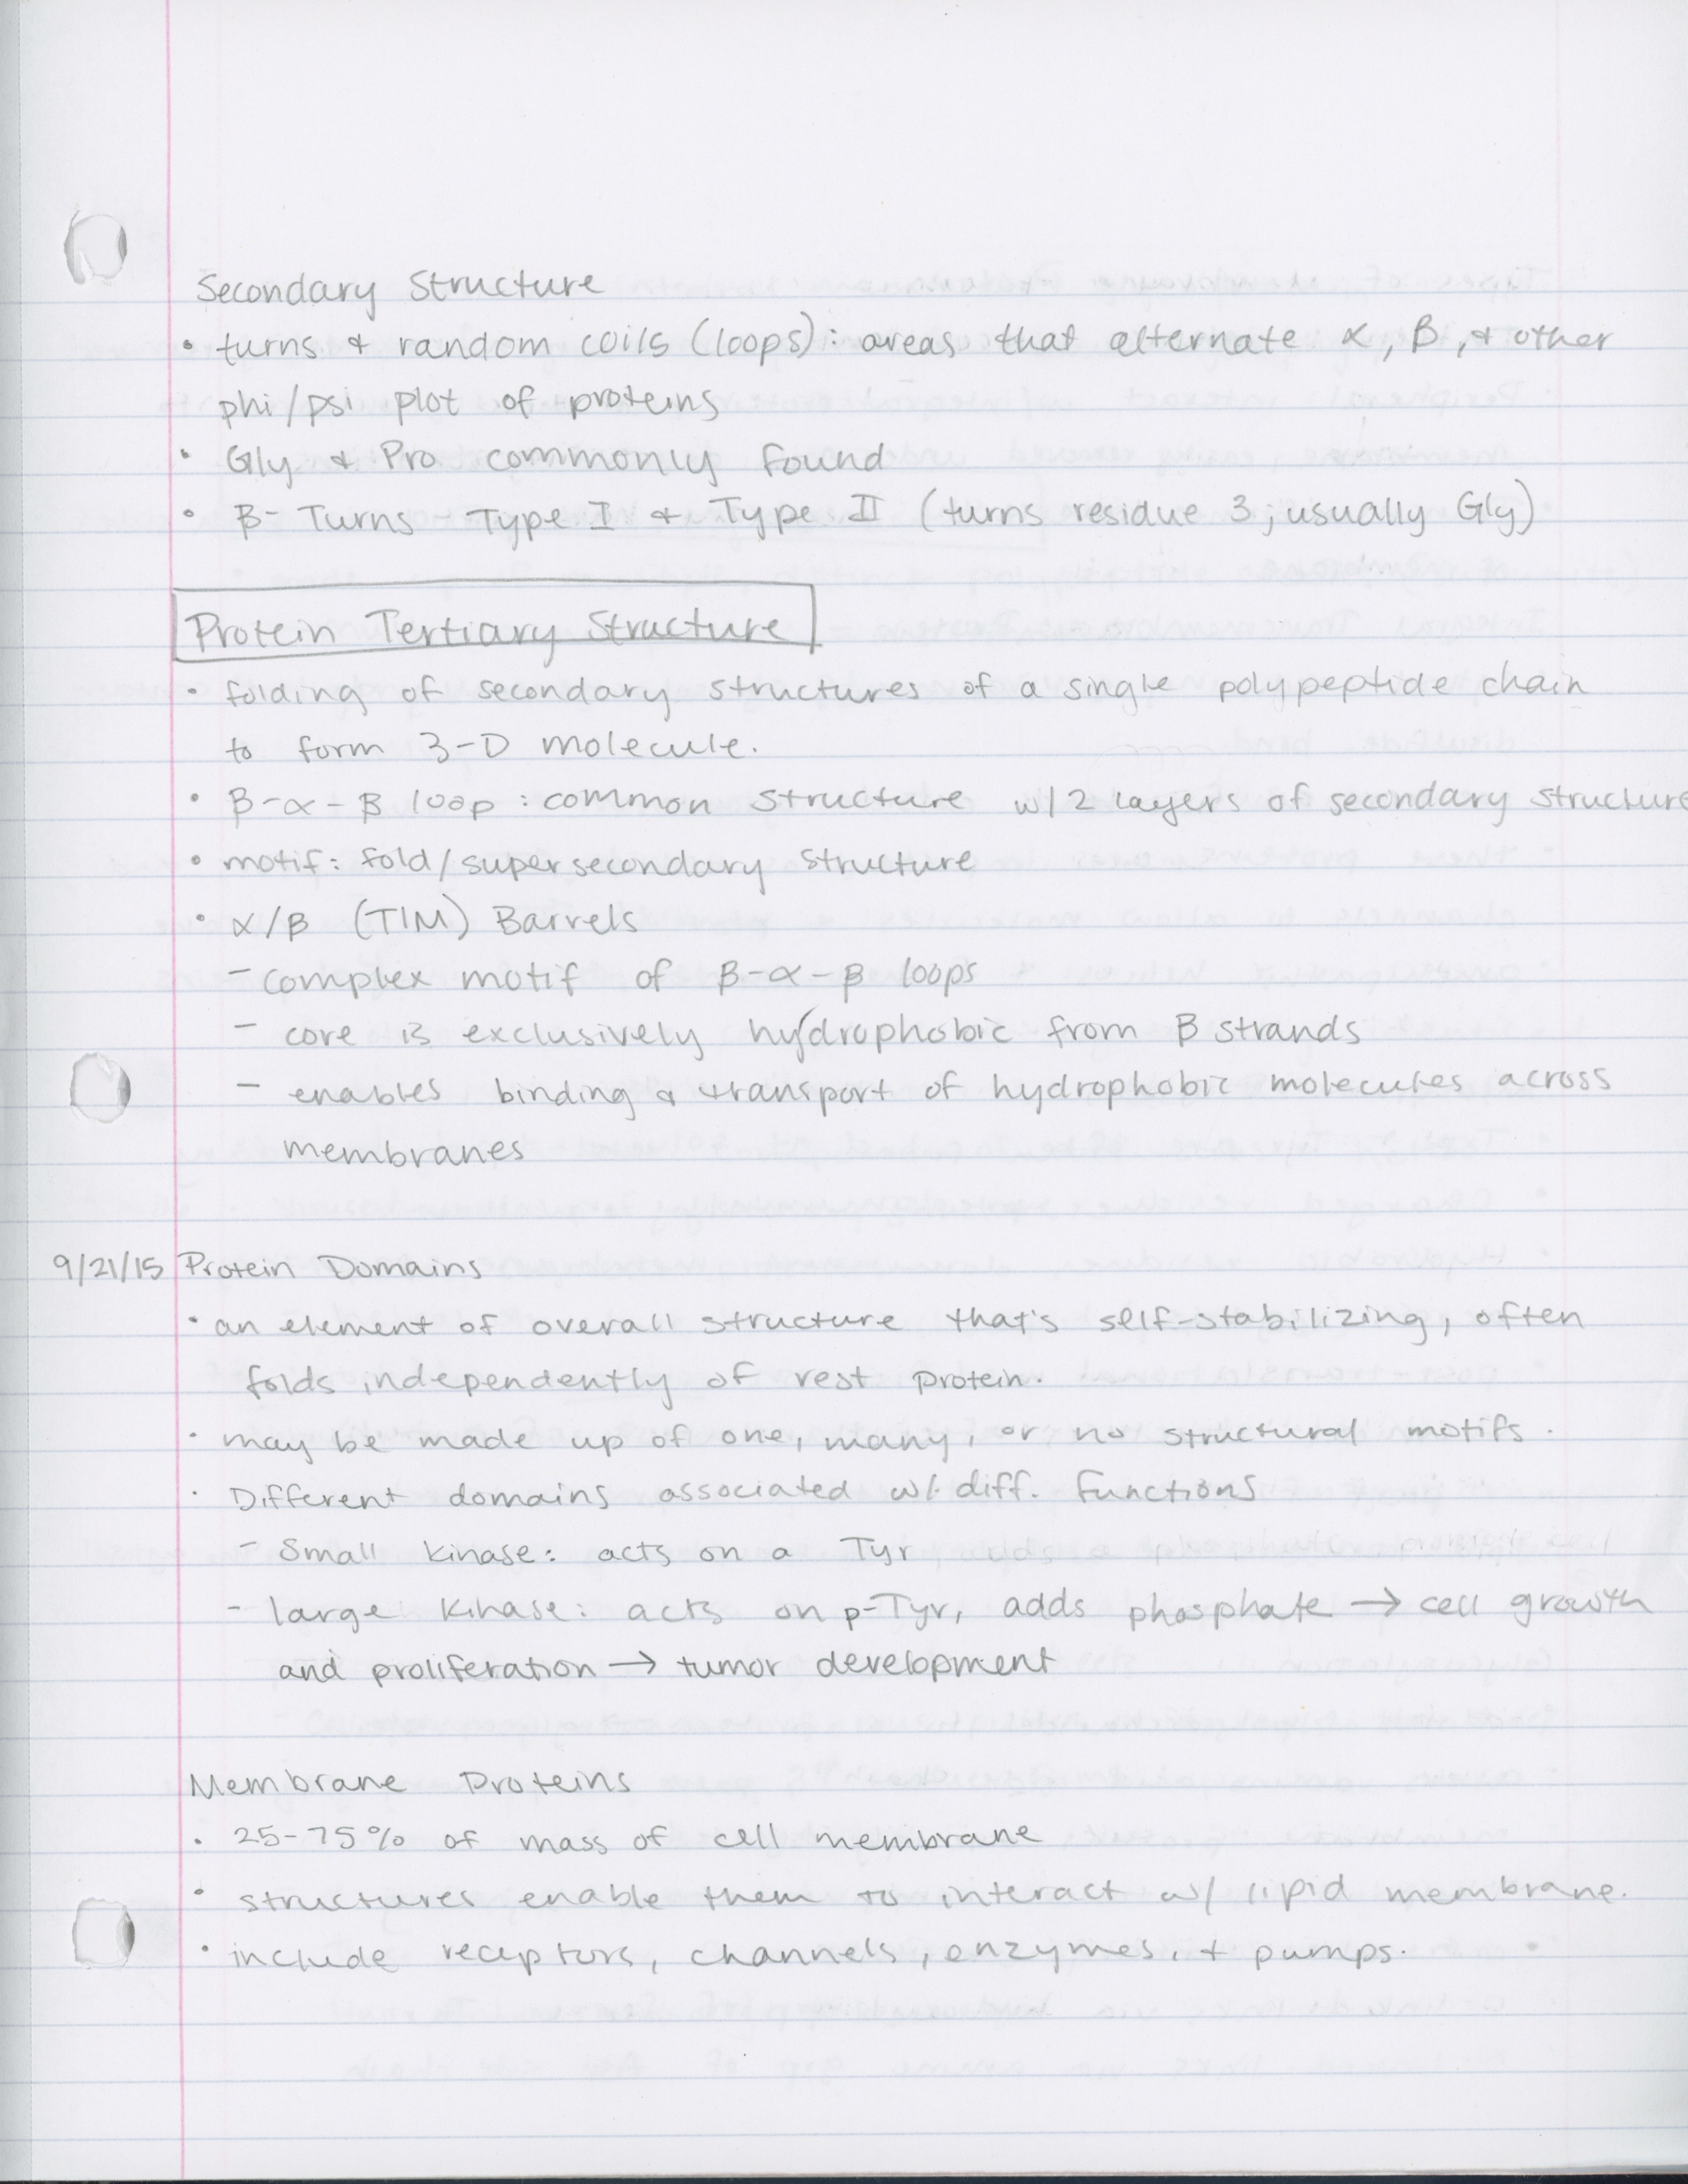 Secondary Structure
• turns & random coils (loops): areas that alternate α, β, & other
phi/psi plot of proteins
• Gly & Pro commonly found
• β- Turns Type I & Type II (turns residue 3; usually Gly)
Protein Tertiary Structure
• folding of secondary structures of a single polypeptide chain
to form 3-D molecule.
• β-α-β loop: common structure w/ 2 layers of secondary structure
• motif: fold/supersecondary structure
• α/β (TIM) Barrels
- complex motif of β-α-β loops
- core is exclusively hydrophobic from β strands
- enables binding & transport of hydrophobic molecules across
membranes
9/21/15 Protein Domains
• an element of overall structure that's self-stabilizing, often
folds independently of rest protein.
• may be made up of one, many, or no structural motifs.
• Different domains associated w/ diff. functions
- Small kinase: acts on a Tyr
- large kinase: acts on p-Tyr, adds phosphate → cell growth
and proliferation → tumor development
Membrane Proteins
• 25-75% of mass of cell membrane
• structures enable them to interact w/ lipid membrane.
• include receptors, channels, enzymes, + pumps.